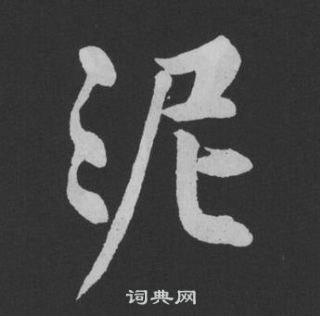 泥
词典网